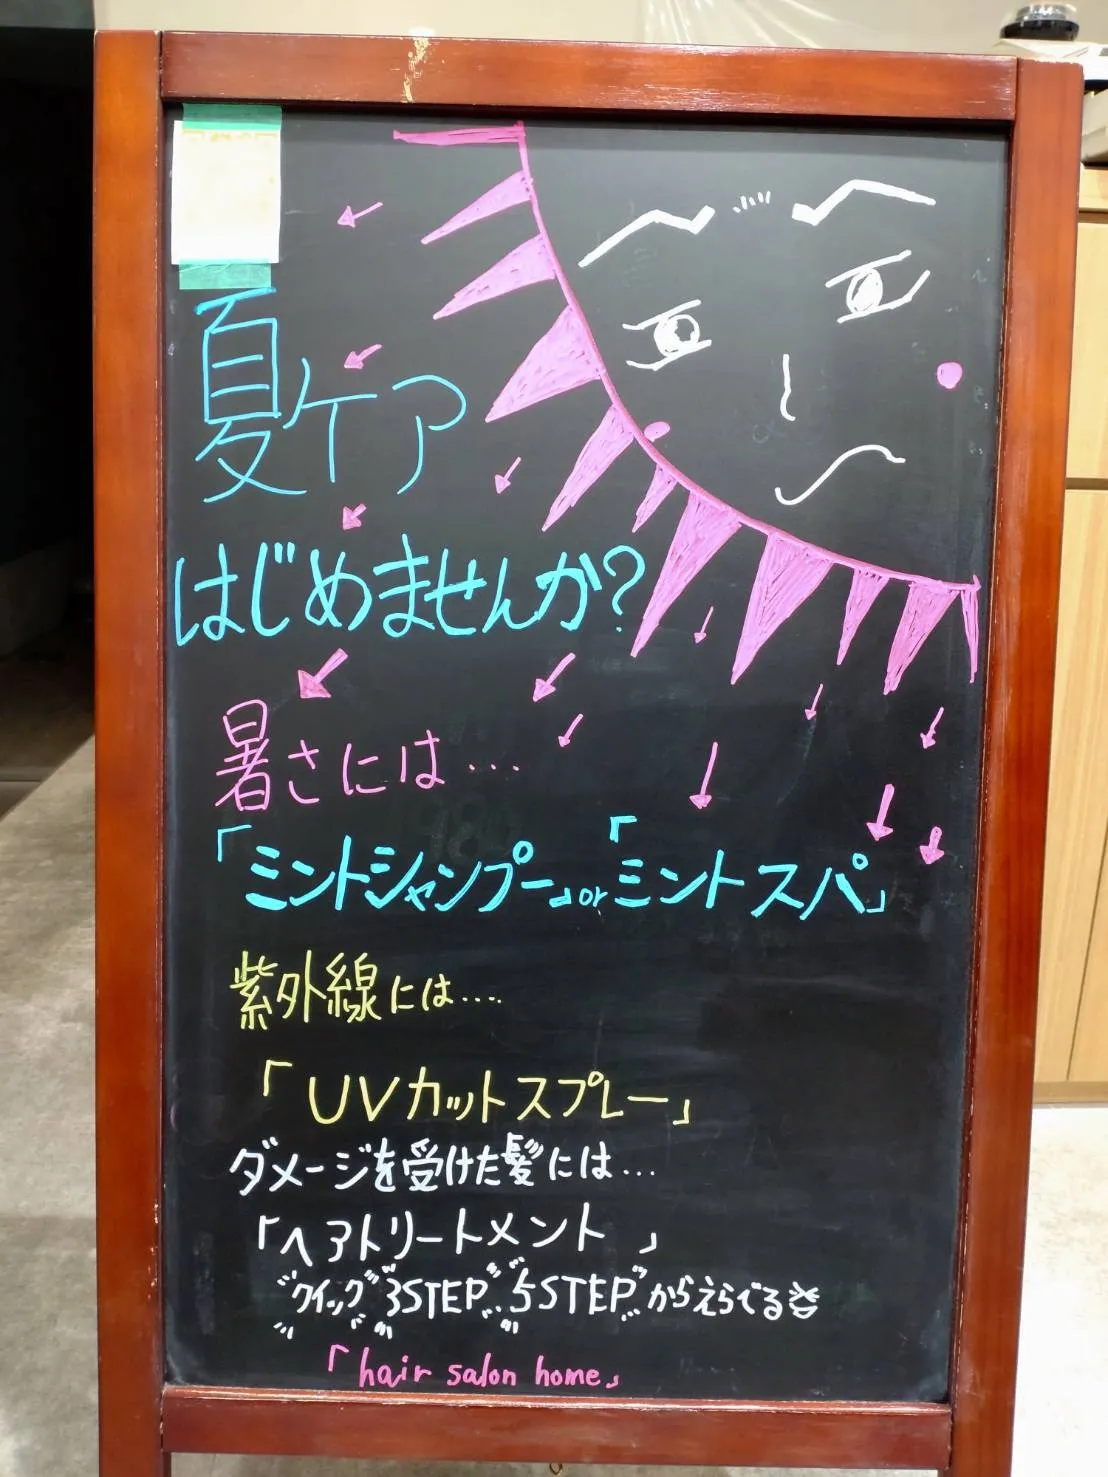 夏ケア
はじめませんか?
暑さには…
「ミントシャンプー」or「ミントスパ」
紫外線には….
「UVカットスプレー」
ダメージを受けた髪には…
「ヘアトリートメント」
クイック 3STEP 5STEPからえらべる
「hair salon home」